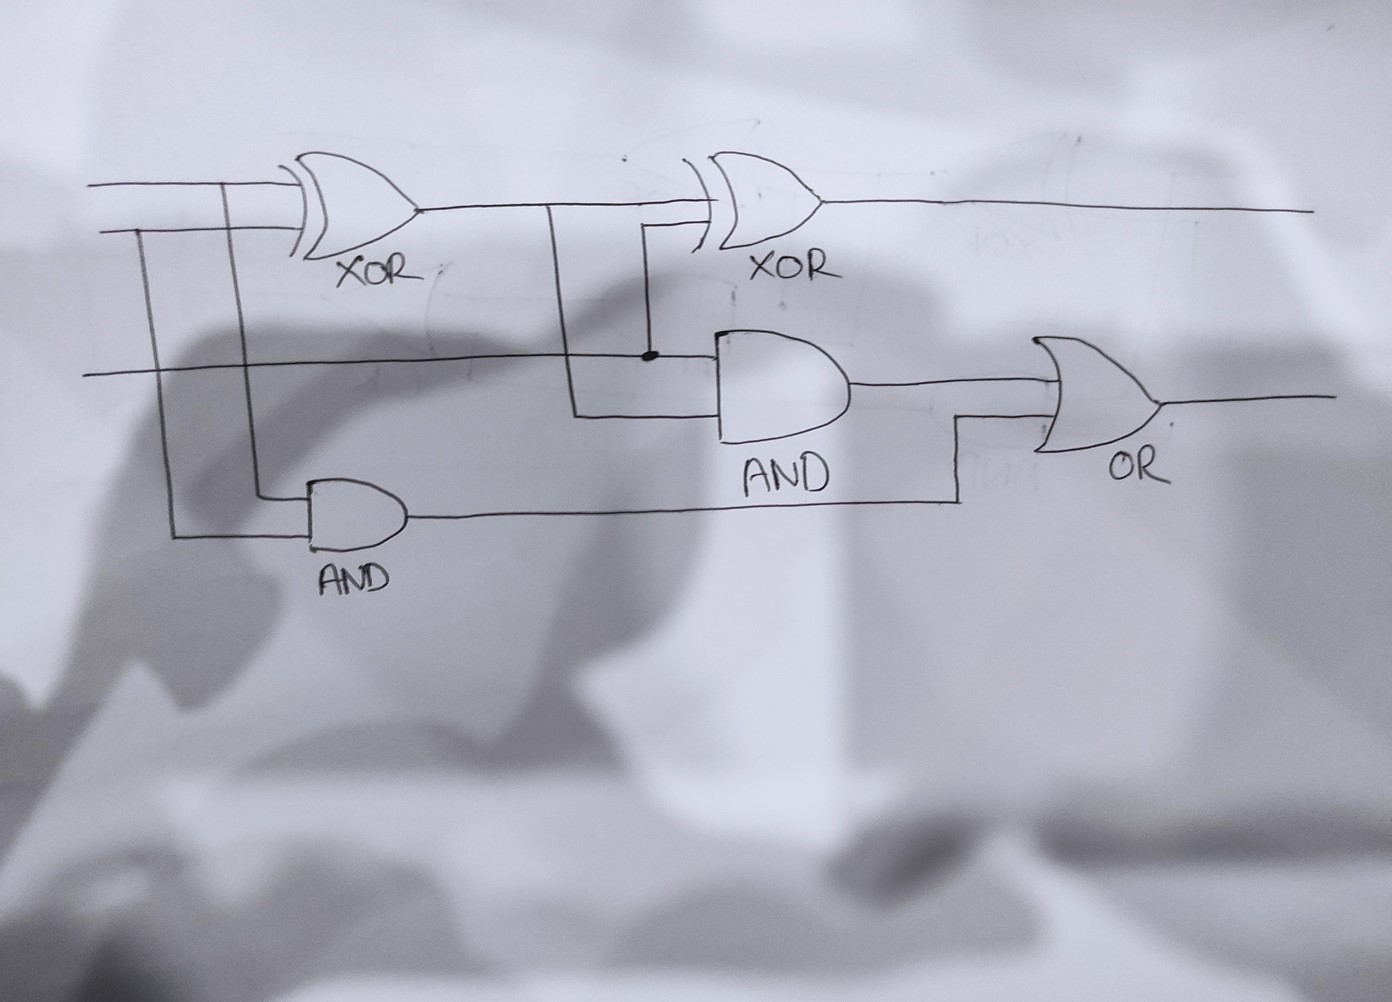 XOR
XOR
AND
OR
AND